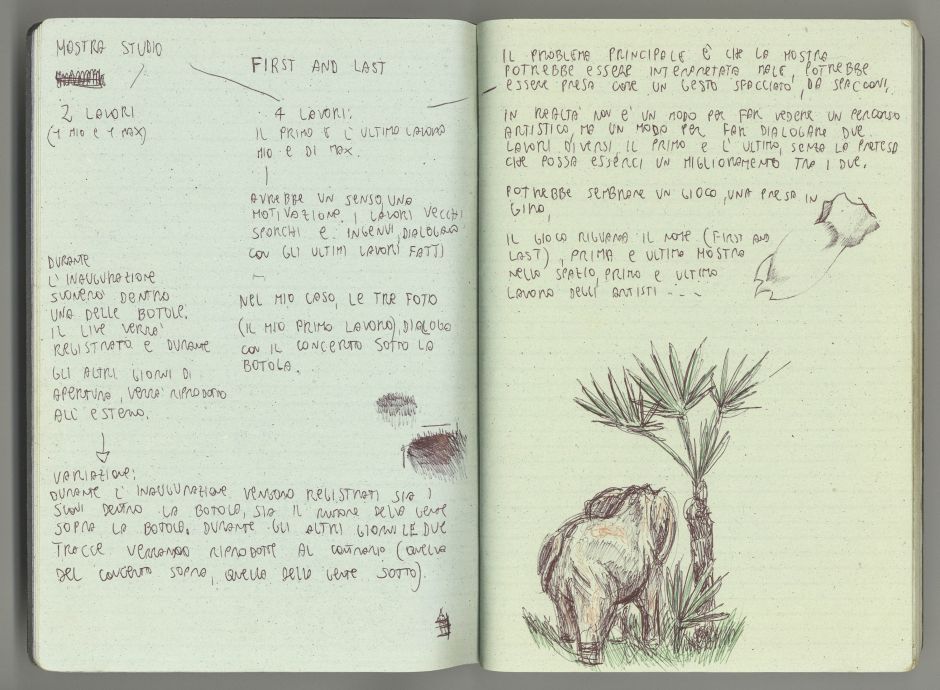 MOSTRA STUDIO
2 LAVORI
(1 MIO E 1 MAX)
DURANTE
L'INAUGURAZIONE
SUONERÒ DENTRO
UNA DELLE BOTOLE.
IL LIVE VERRA'
REGISTRATO E DURANTE
GLI ALTRI GIORNI DI
APERTURA, VERRA' RIPRODOTTO
ALL'ESTERNO.
FIRST AND LAST
4 LAVORI:
IL PRIMO E L'ULTIMO LAVORO
MIO E DI MAX.
AVREBBE UN SENSO, UNA
MOTIVAZIONE. I LAVORI VECCHI
SPORCHI E INGENUI, DIALOGANO
CON GLI ULTIMI LAVORI FATTI
NEL MIO CASO, LE TRE FOTO
(IL MIO PRIMO LAVORO), DIALOGO
CON IL CONCERTO SOTTO LA
BOTOLA.
VARIAZIONE:
DURANTE L'INAUGURAZIONE VENGONO REGISTRATI SIA I
SUONI DENTRO LA BOTOLA, SIA IL RUMORE DELLA GENTE
SOPRA LA BOTOLA. DURANTE GLI ALTRI GIORNI LE DUE
TRACCE VERRANNO RIPRODOTTE AL CONTRARIO (QUELLA
DEL CONCERTO SOPRA, QUELLA DELLA GENTE SOTTO).
IL PROBLEMA PRINCIPALE È CHE LA MOSTRA
POTREBBE ESSERE INTERPRETATA MALE, POTREBBE
ESSERE PRESA COME UN GESTO SPACCIATO, DA SPACCONI.
IN REALTÀ NON E' UN MODO PER FAR VEDERE UN PERCORSO
ARTISTICO, MA UN MODO PER FAR DIALOGARE DUE
LAVORI DIVERSI, IL PRIMO E L'ULTIMO, SENZA LA PRETESA
CHE POSSA ESSERCI UN MIGLIORAMENTO TRA I DUE.
POTREBBE SEMBRARE UN GIOCO, UNA PRESA IN
GIRO,
IL GIOCO RIGUARDA IL NOME (FIRST AND
LAST), PRIMA E ULTIMA MOSTRA
NELLO SPAZIO, PRIMO E ULTIMO
LAVORO DEGLI ARTISTI - - -